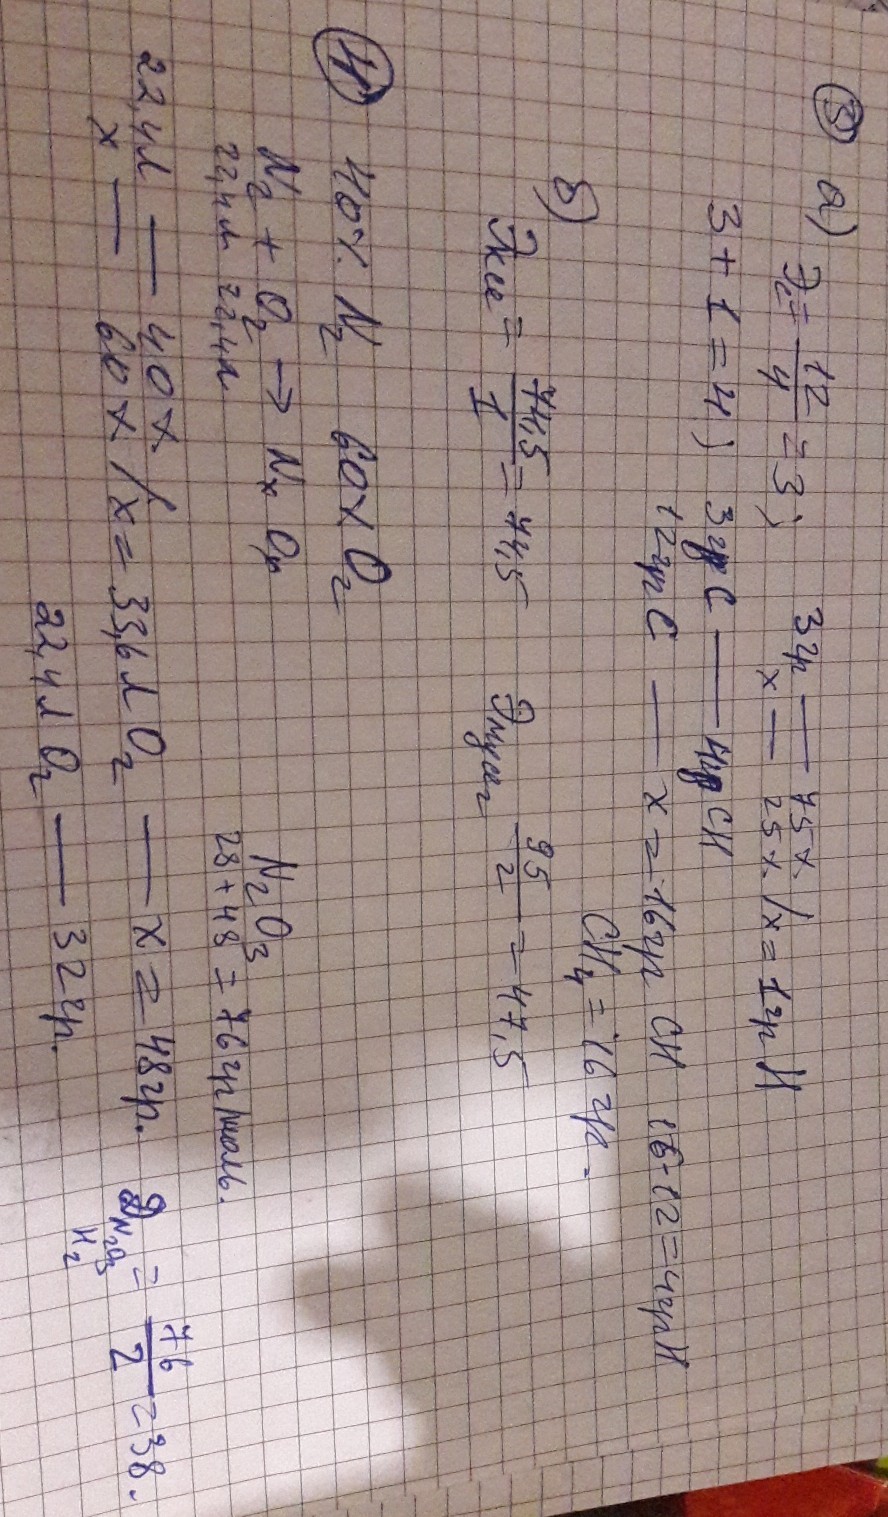 ③ а) Эc = 12/4 = 3; 3гр — 75%
x — 25% / x = 1гр H
3 + 1 = 4) 3гр C — 4гр CH
12гр C — x = 16гр CH 16-12 = 4гр H
CH₄ = 16 гр.
б) Экcl = 74,5/1 = 74,5 Эмгcl₂ 95/2 = 47,5
④ 40% N₂ 60% O₂
N₂ + O₂ → NₓOᵧ N₂O₃
22,4л 22,4л 28 + 48 = 76 гр/моль.
22,4л — 40%
x — 60% / x = 33,6л O₂ — x = 48гр. Д N₂O₃/H₂ = 76/2 = 38.
22,4л O₂ — 32гр.